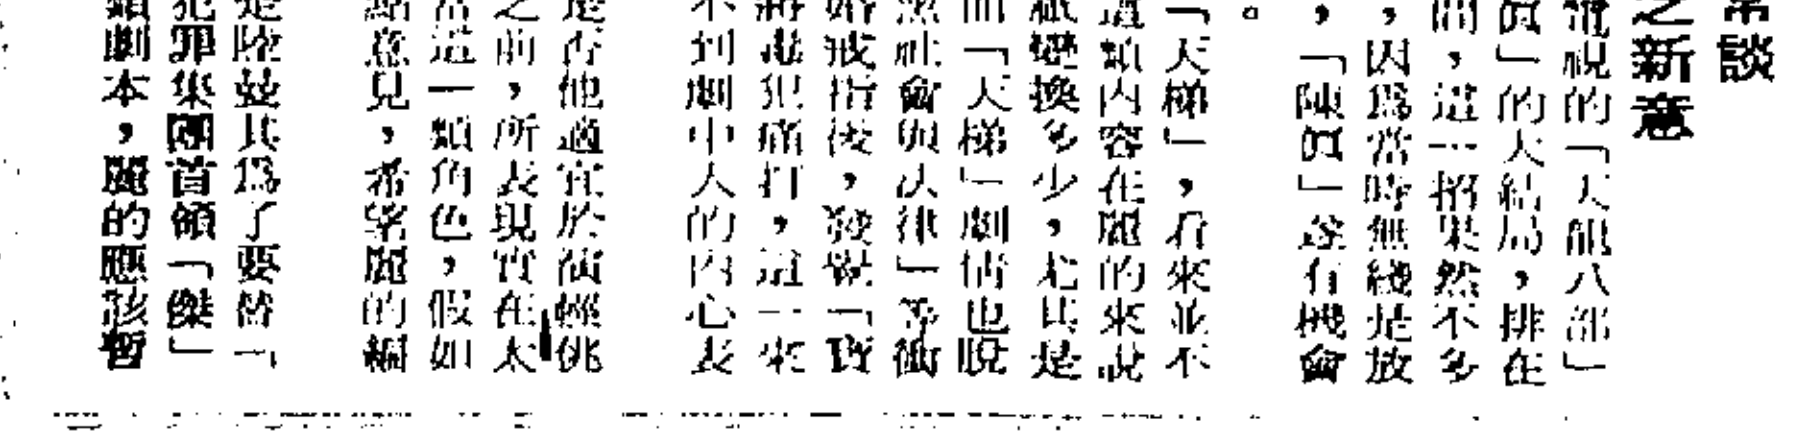 常談
之新意
電視的「天龍八部」
真」的大結局，排在
間，這一招果然不多
，因爲當時無綫是放
，「陳真」遂有機會
。
「天梯」，看來並不
這類內容在麗的來說
紙變換多少，尤其是
而「天梯」劇情也脫
黑社會與法律」等衝
婚戒指後，發覺「寶
將毒犯痛打，這一來
不到劇中人的內心表
是否他適宜於演輕佻
之前，所表現實在太
當這一類角色，假如
點意見，希望麗的編
是陸曼其爲了要替「
犯罪集團首領「傑」
類劇本，麗的應該暫